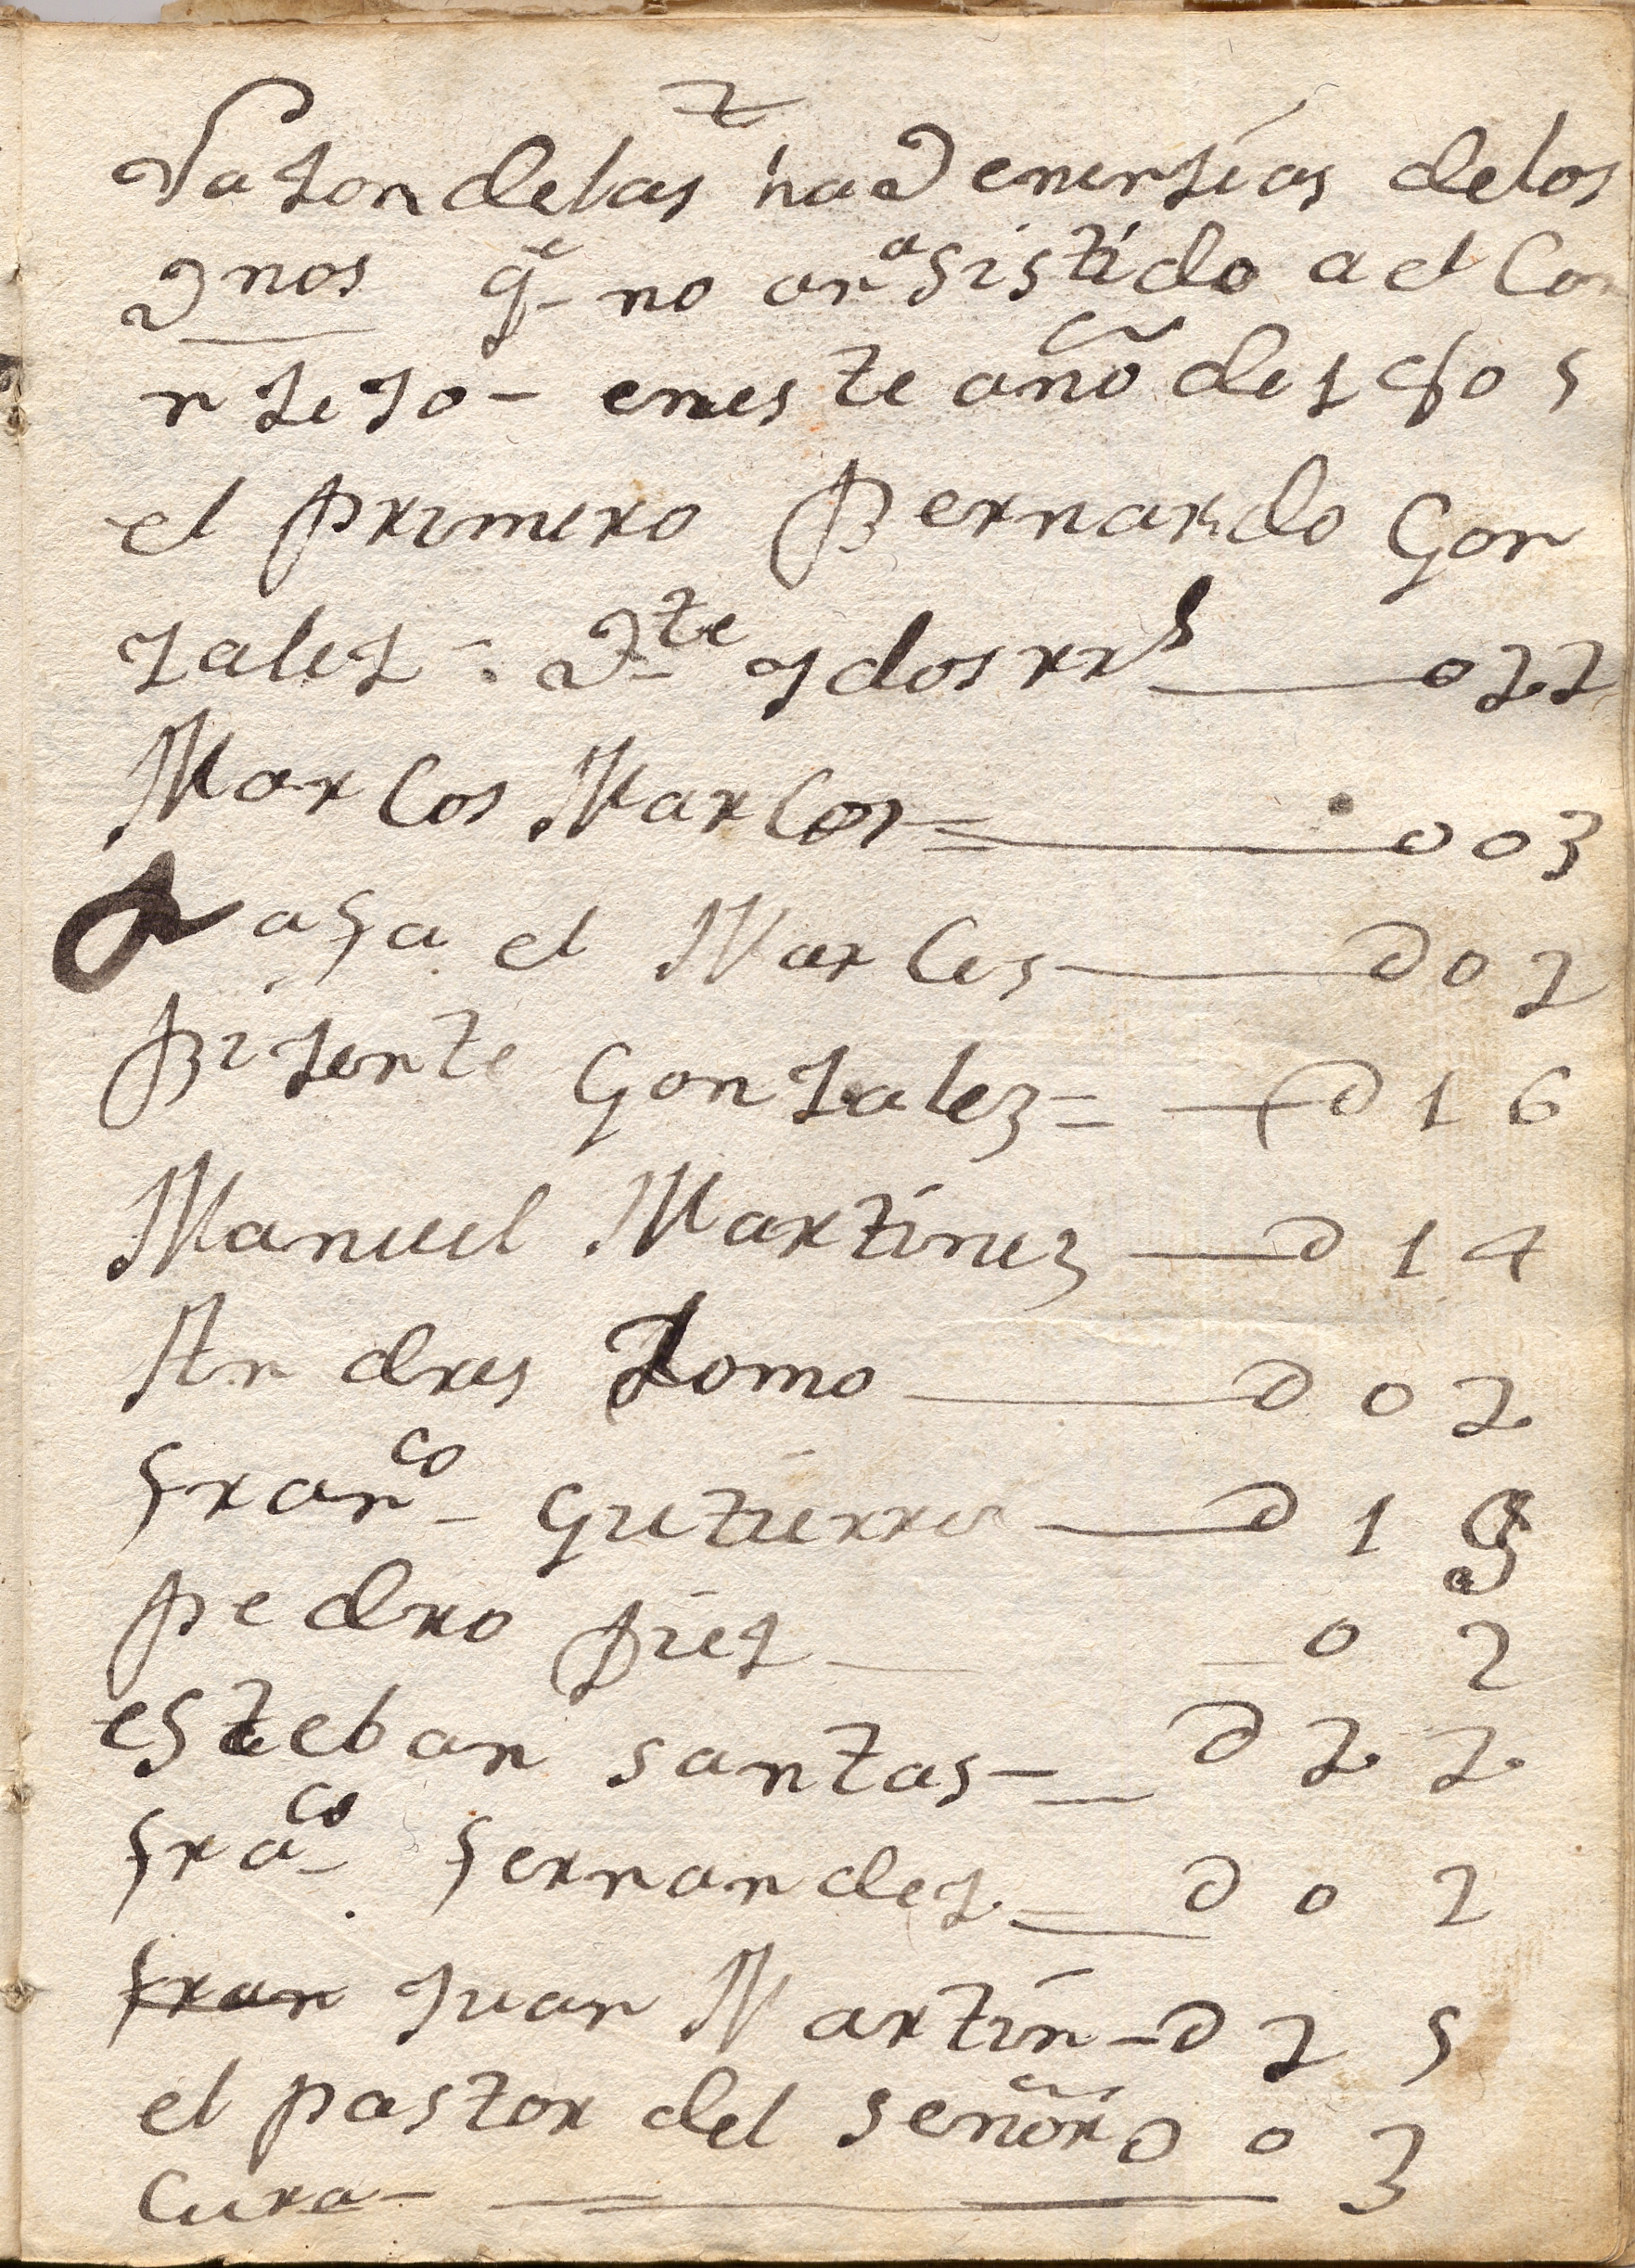 Raçon de las hadvenençias de los
vnos q.e no an asistido a el Con
nçejo - en este año de 1805
el primero Bernardo Gon
zalez - . v.te y dos rr.s 022
Marcos Marcos = 003
Rafael Marcos 002
Biçente Gonzalez = 016
Manuel Martinez 014
Andres Romo 002
fran.co Gutierrez 01
pedro piez 02
esteban santos - 022
fra.co fernandez 002
fran Juan Martin - 025
el pastor del señor 003
Cura - 3